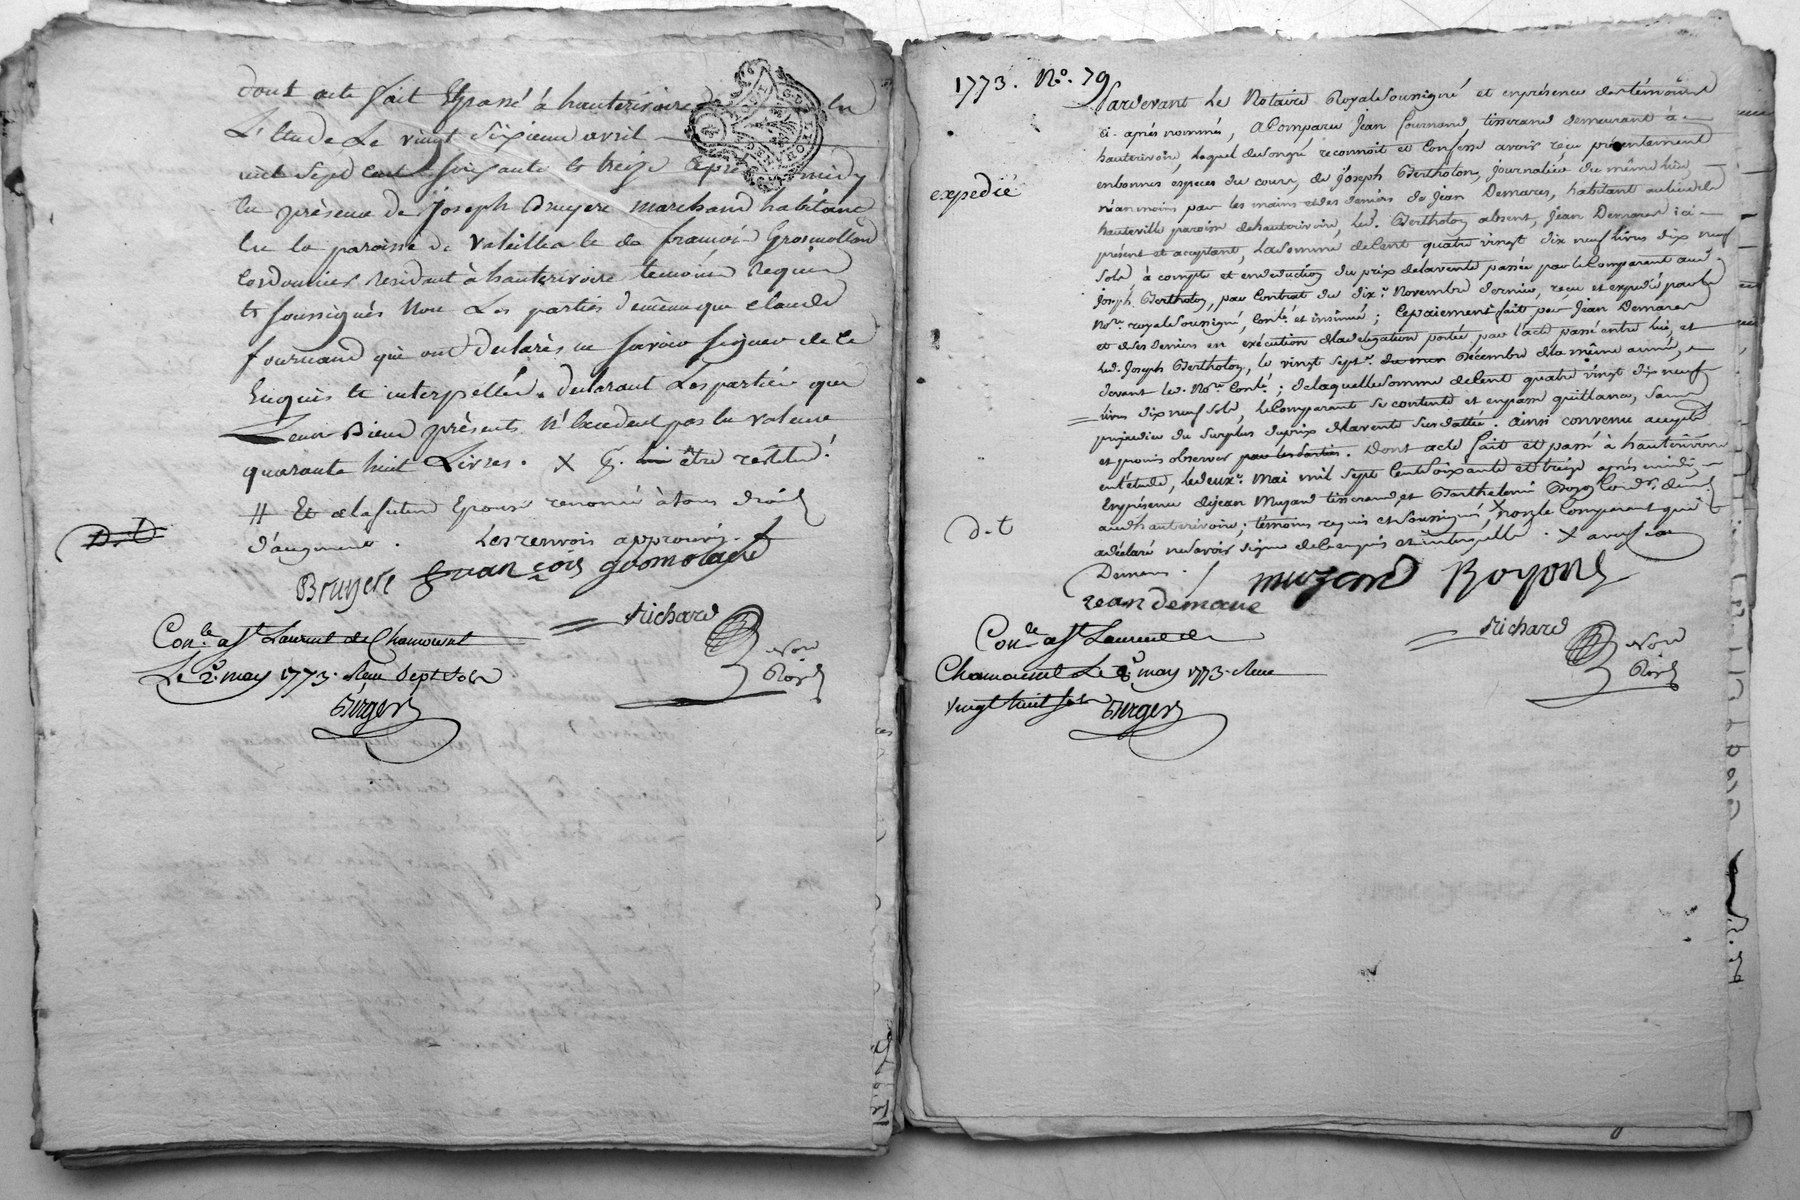 dont acte fait & passé à hauterivoire en
L'Etude Le vingt sixieme avril
mil sept cent soixante & treize après midy
En présence de Joseph Bruyere marchand habitant
En la paroisse de Valeille & de françois Gromollard
Cordonnier résidant à hauterivoire temoins requis
& soussignés Non Les parties de même que claude
fournand qui ont déclarés ne savoir signer de ce
Enquis & interpellés. déclarant Les parties que
Leurs Biens présents N'excedent pas la valeur
quarante huit Livres. X
// Et de la future Epouse renoncé à tous droits
d'augment. Les renvois approuvés.
D.t
Bruyere françois gromolard
Richard
Con.le a St Laurent de Chamousset
Le 2. may 1773. Reçu Sept sols
Burger
Nore
Royal
1773. No. 79
Pardevant Le Notaire Royal soussigné et en présence des témoins
ci-après nommés, a Comparu Jean fournand tisserand demeurant à
hauterivoire, Lequel de son gré reconnoit et Confesse avoir reçu présentement
expedié
en bonnes especes du cours, de Joseph Bertholon, journalier du même lieu
néanmoins par les mains et des deniers de Jean Demares, habitant au lieu de
hauteville, paroisse de hauterivoire, led. Bertholon absent, Jean Demares ici
présent et acceptant, La somme de Cent quatre vingt dix neuf livres dix neuf
sols à compte et en déduction du prix de la vente passée par le Comparant aud.
Joseph Bertholon, par Contrat du dix Novembre dernier, reçu et expédié par le
No.re royal soussigné, Conlé et insinué; Le paiement fait par Jean Demares
et de ses deniers en exécution de la délégation portée par l'acte passé entre lui, et
led. Joseph Bertholon, le vingt sept Décembre de la même année,
devant led. No.re Conlé; de laquelle somme de Cent quatre vingt dix neuf
livres dix neuf sols, le Comparant se contente et en passe quittance, sans
préjudice du surplus du prix de la vente susdattée. ainsi convenu accepté
et promis observer par les parties. Dont acte fait et passé à hauterivoire
en l'étude, le deux Mai mil sept Cent soixante et treize après midi
En présence de Jean Muzard tisserand, et Barthelemi Boyon
aud. hauterivoire, témoins requis et soussignés, non le Comparant qui
D.t
a déclaré ne savoir signer de ce enquis et interpellé. X avec Jean
Demares.
muzard Boyon
Jean démare
Richard
Con.le a St Laurent de
Chamousset Le 2 may 1773. Reçu
vingt huit sols Burger
Nore
Royal